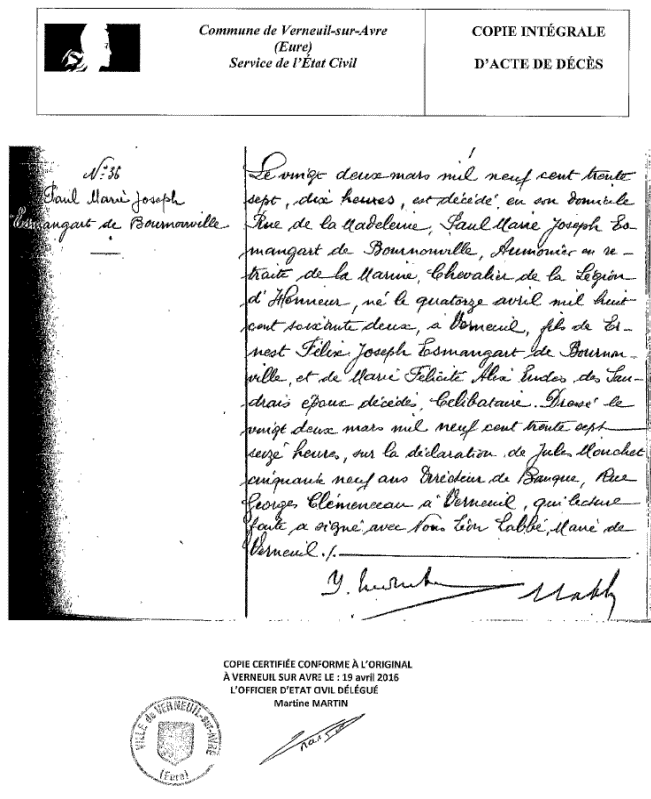 Commune de Verneuil-sur-Avre
(Eure)
Service de l'État Civil
COPIE INTÉGRALE
D'ACTE DE DÉCÈS
N° 36
Paul Marie Joseph
Esmangart de Bournonville
Le vingt deux mars mil neuf cent trente
sept, dix heures, est décédé en son domicile
Rue de la Madeleine, Paul Marie Joseph Es-
mangart de Bournonville, Aumonier en re-
traite de la Marine, Chevalier de la Légion
d'Honneur, né le quatorze avril mil huit
cent soixante deux, à Verneuil, fils de Er-
nest Félix Joseph Esmangart de Bournon-
ville, et de Marie Félicité Alix Eudes des Gau-
drais époux décédés, Célibataire. Dressé le
vingt deux mars mil neuf cent trente sept
seize heures, sur la déclaration de Jules Mouchet
cinquante neuf ans Directeur de Banque, Rue
Georges Clémenceau à Verneuil, qui lecture
faite a signé avec Nous Léon Labbé, Maire de
Verneuil ./.
COPIE CERTIFIÉE CONFORME À L'ORIGINAL
À VERNEUIL SUR AVRE LE : 19 avril 2016
L'OFFICIER D'ETAT CIVIL DÉLÉGUÉ
Martine MARTIN
VILLE de VERNEUIL-sur-AVRE
(Eure)